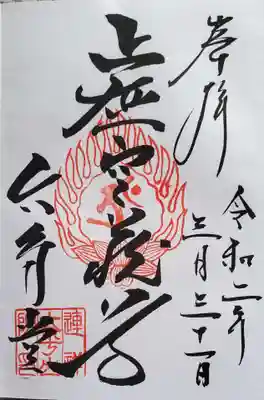 奉拝
令和二年
三月三十一日
上虚空蔵尊
六角堂